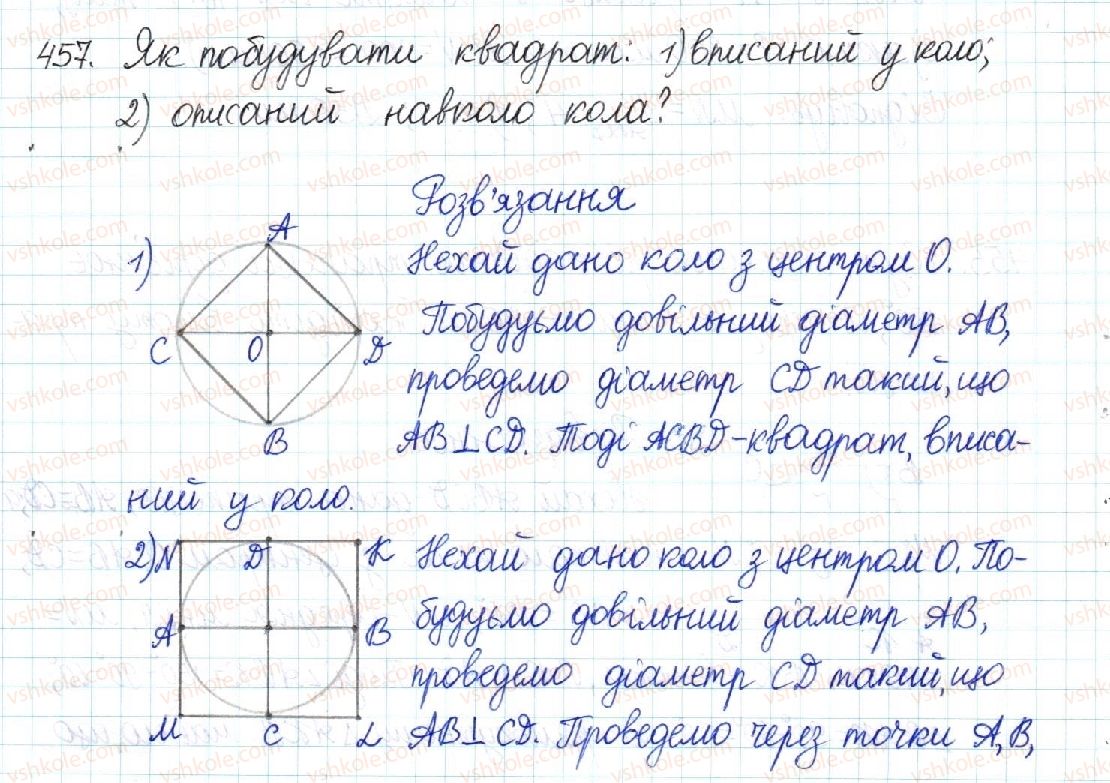 457. Як побудувати квадрат: 1) вписаний у коло;
2) описаний навколо кола?
Розв'язання
1)
A
C
O
D
B
Нехай дано коло з центром O.
Побудуємо довільний діаметр AB,
проведемо діаметр CD такий, що
AB⊥CD. Тоді ACBD-квадрат, вписа-
ний у коло.
2)
N
D
K
A
B
M
C
L
Нехай дано коло з центром O. По-
будуьмо довільний діаметр AB,
проведемо діаметр CD такий, що
AB⊥CD. Проведемо через точки A, B,
vshkole.com